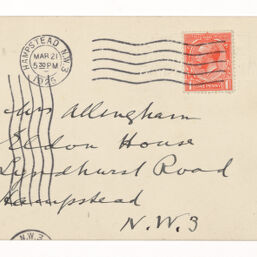 HAMPSTEAD N.W.3
MAR 21
5.30 PM
ONE PENNY
Mrs Allingham
Eldon House
Lyndhurst Road
Hampstead
N.W.3
N.W.3